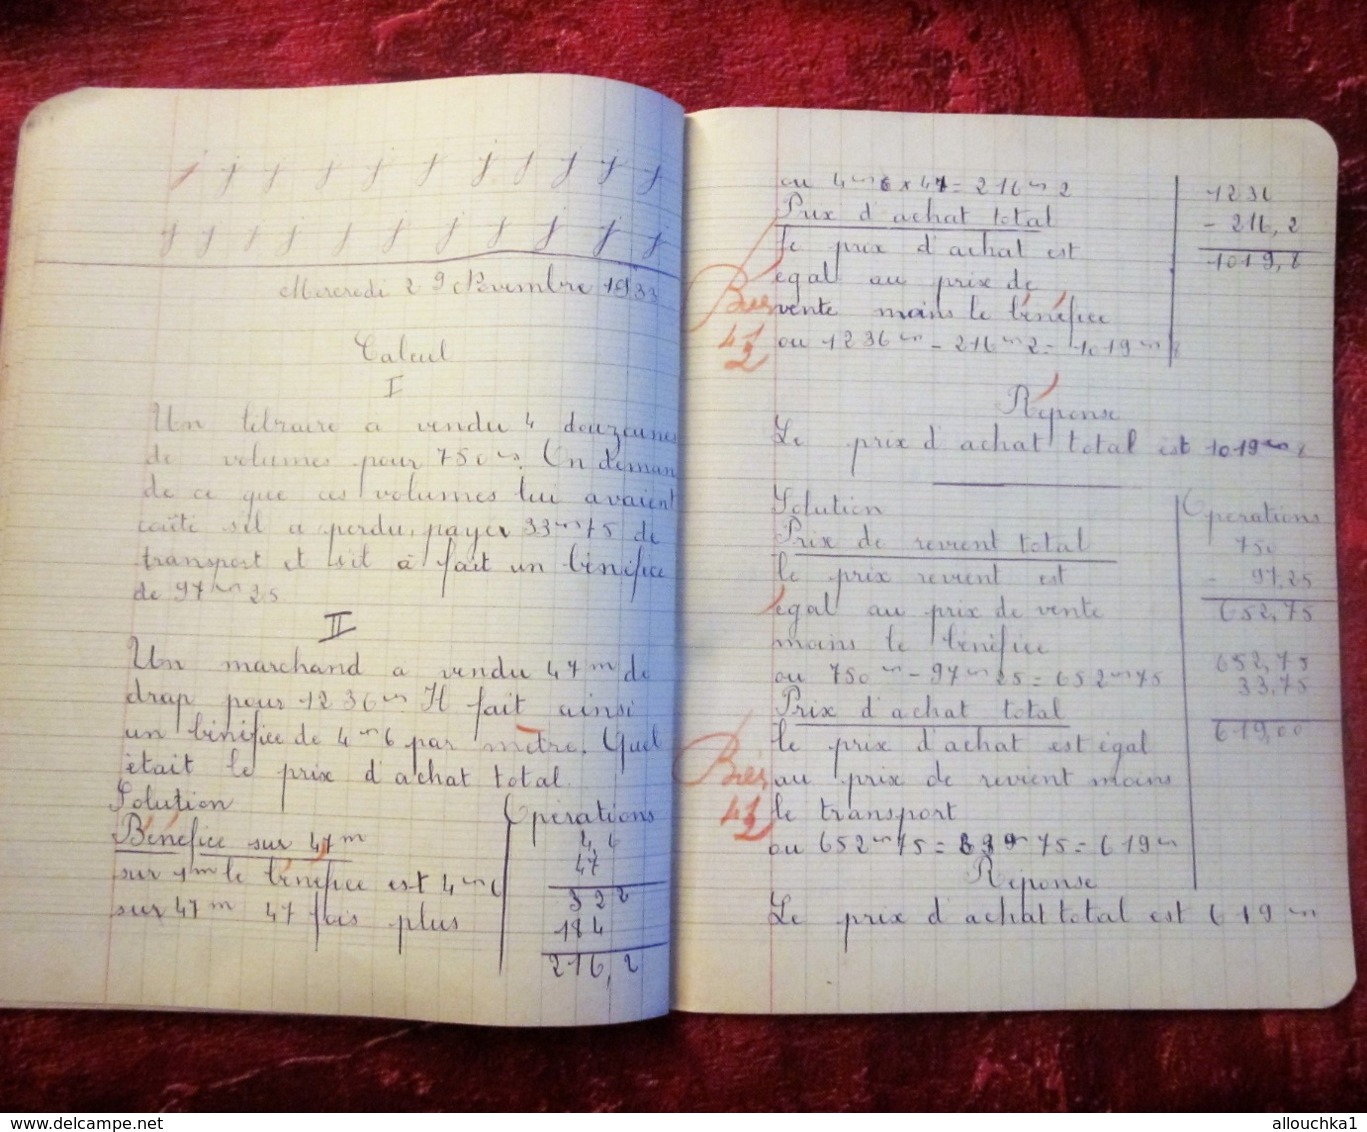 j j j j j j j j j j j
j j j j j j j j j j j
Mercredi 29 Novembre 1933
Calcul
I
Un libraire a vendu 4 douzaines
de volumes pour 750 fr. On deman
de ce que ces volumes lui avaient
coûté s'il a perdu, payer 33 fr 75 de
transport et s'il à fait un bénéfice
de 97 fr 25
II
Un marchand a vendu 47 m de
drap pour 1236 fr Il fait ainsi
un bénéfice de 4 fr 6 par mètre. Quel
était le prix d'achat total.
Solution
Opérations
Bénéfice sur 47 m
4,6
47
sur 1 m le bénéfice est 4 fr 6
322
sur 47 m 47 fois plus
184
216,2
ou 4 fr 6 x 47 = 216 fr 2
1236
Prix d'achat total
- 216,2
le prix d'achat est
1019,8
égal au prix de
Bien
vente moins le bénéfice
ou 1236 fr - 216 fr 2 = 1019 fr 8
Réponse
Le prix d'achat total est 1019 fr 8
Solution
Opérations
Prix de revient total
750
le prix revient est
- 97,25
égal au prix de vente
652,75
moins le bénéfice
652,75
ou 750 fr - 97 fr 25 = 652 fr 75
33,75
Prix d'achat total
619,00
le prix d'achat est égal
Bien
au prix de revient moins
le transport
ou 652 fr 75 = 33 fr 75 = 619 fr
Réponse
Le prix d'achat total est 619 fr
www.delcampe.net
allouchka1